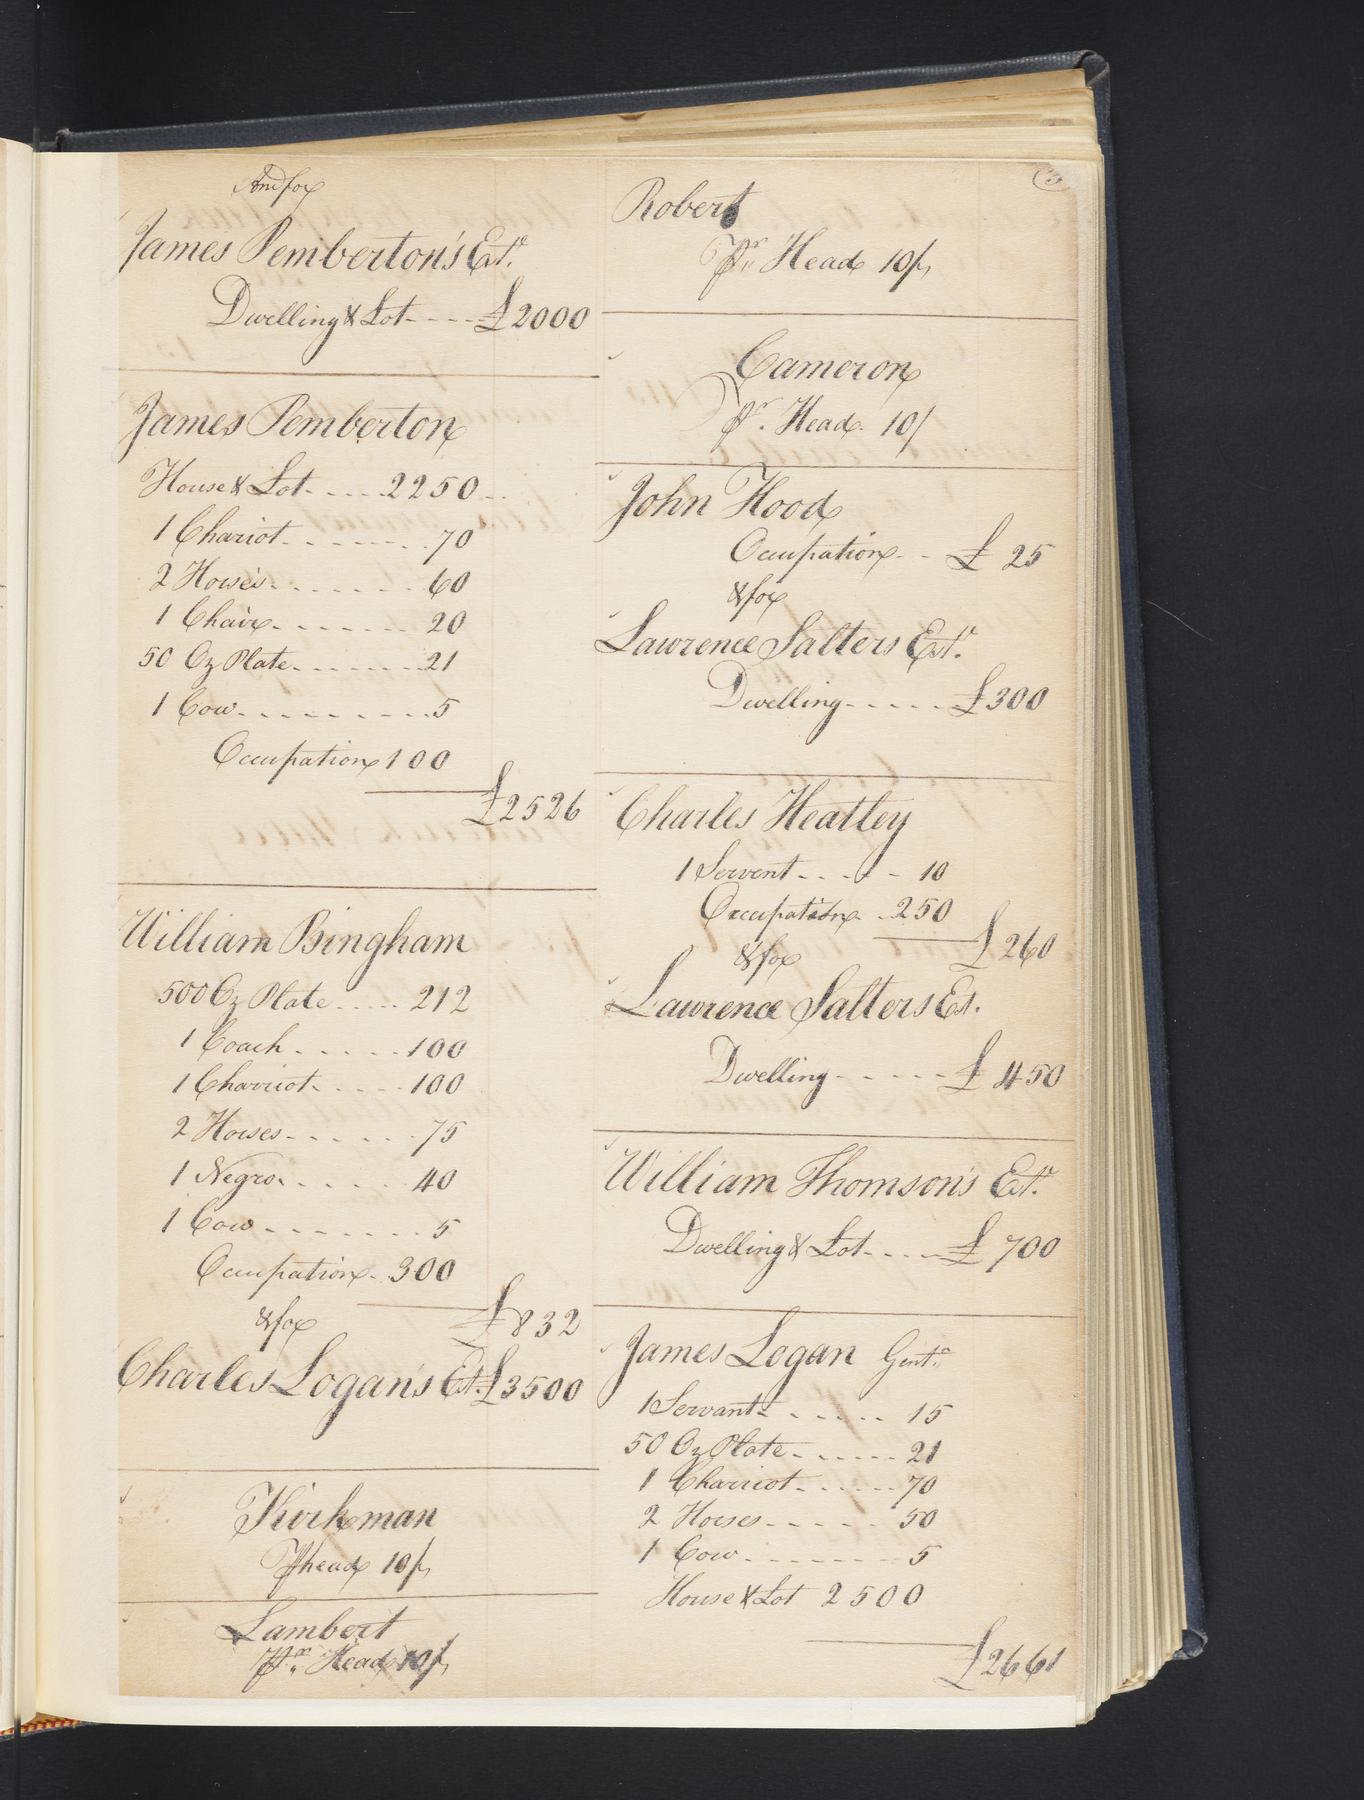 And for
James Pemberton's Est.
Dwelling & Lot - - - - £2000
James Pemberton
House & Lot - - - - 2250
1 Chariot - - - - - - - 70
2 Horses - - - - - - - 60
1 Chair - - - - - - - 20
50 Oz Plate - - - - - - 21
1 Cow - - - - - - - - - 5
Occupation 100
£2526
William Bingham
500 Oz Plate - - - - - 212
1 Coach - - - - - 100
1 Charriot - - - - - 100
2 Horses - - - - - - 75
1 Negro - - - - - 40
1 Cow - - - - - - - - 5
Occupation - 300
£832
& for
Charles Logan's Est. £3500
Kirkman
Pr head 10/
Lambert
Pr Head 10/
3
Robert
Pr Head 10/
Cameron
Pr Head 10/
John Hood
Occupation - - £ 25
& for
Lawrence Salters Est.
Dwelling - - - - - £300
Charles Heatley
1 Servent - - - - - 10
Occupation - 250
£260
& for
Lawrence Salters Es.
Dwelling - - - - - £ 450
William Thomson's Est.
Dwelling & Lot - - - - £ 700
James Logan Gentn
1 Servant - - - - - 15
50 Oz Plate - - - - - - 21
1 Charriot - - - - - - 70
2 Horses - - - - - 50
1 Cow - - - - - - - - 5
House & Lot 2500
£2661